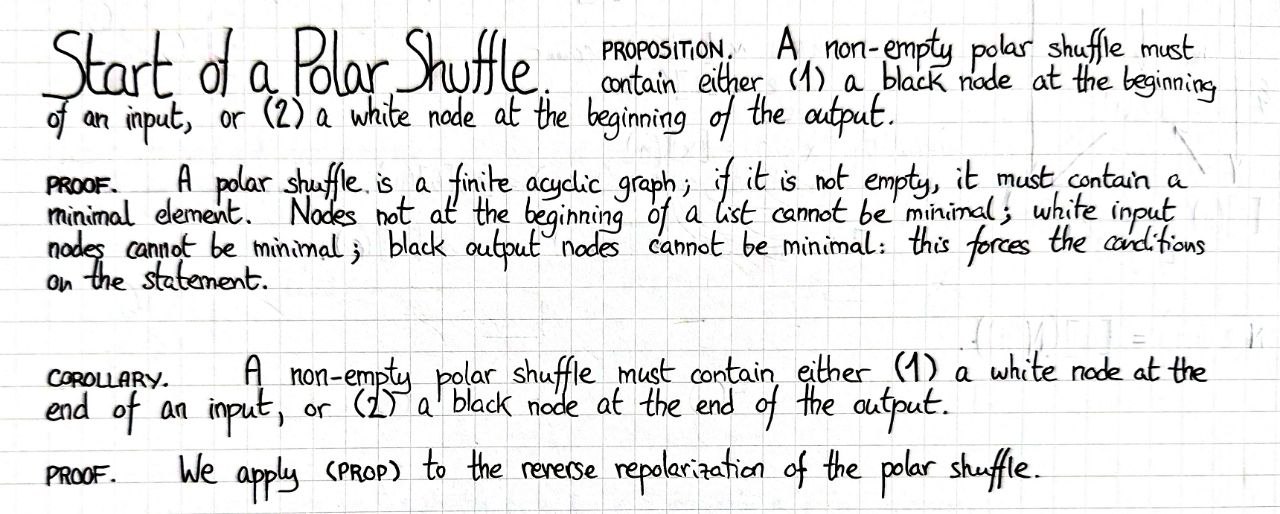 Start of a Polar Shuffle. PROPOSITION. A non-empty polar shuffle must
contain either (1) a black node at the beginning
of an input, or (2) a white node at the beginning of the output.
PROOF. A polar shuffle is a finite acyclic graph; if it is not empty, it must contain a
minimal element. Nodes not at the beginning of a list cannot be minimal; white input
nodes cannot be minimal; black output nodes cannot be minimal: this forces the conditions
on the statement.
COROLLARY. A non-empty polar shuffle must contain either (1) a white node at the
end of an input, or (2) a black node at the end of the output.
PROOF. We apply (PROP) to the reverse repolarization of the polar shuffle.